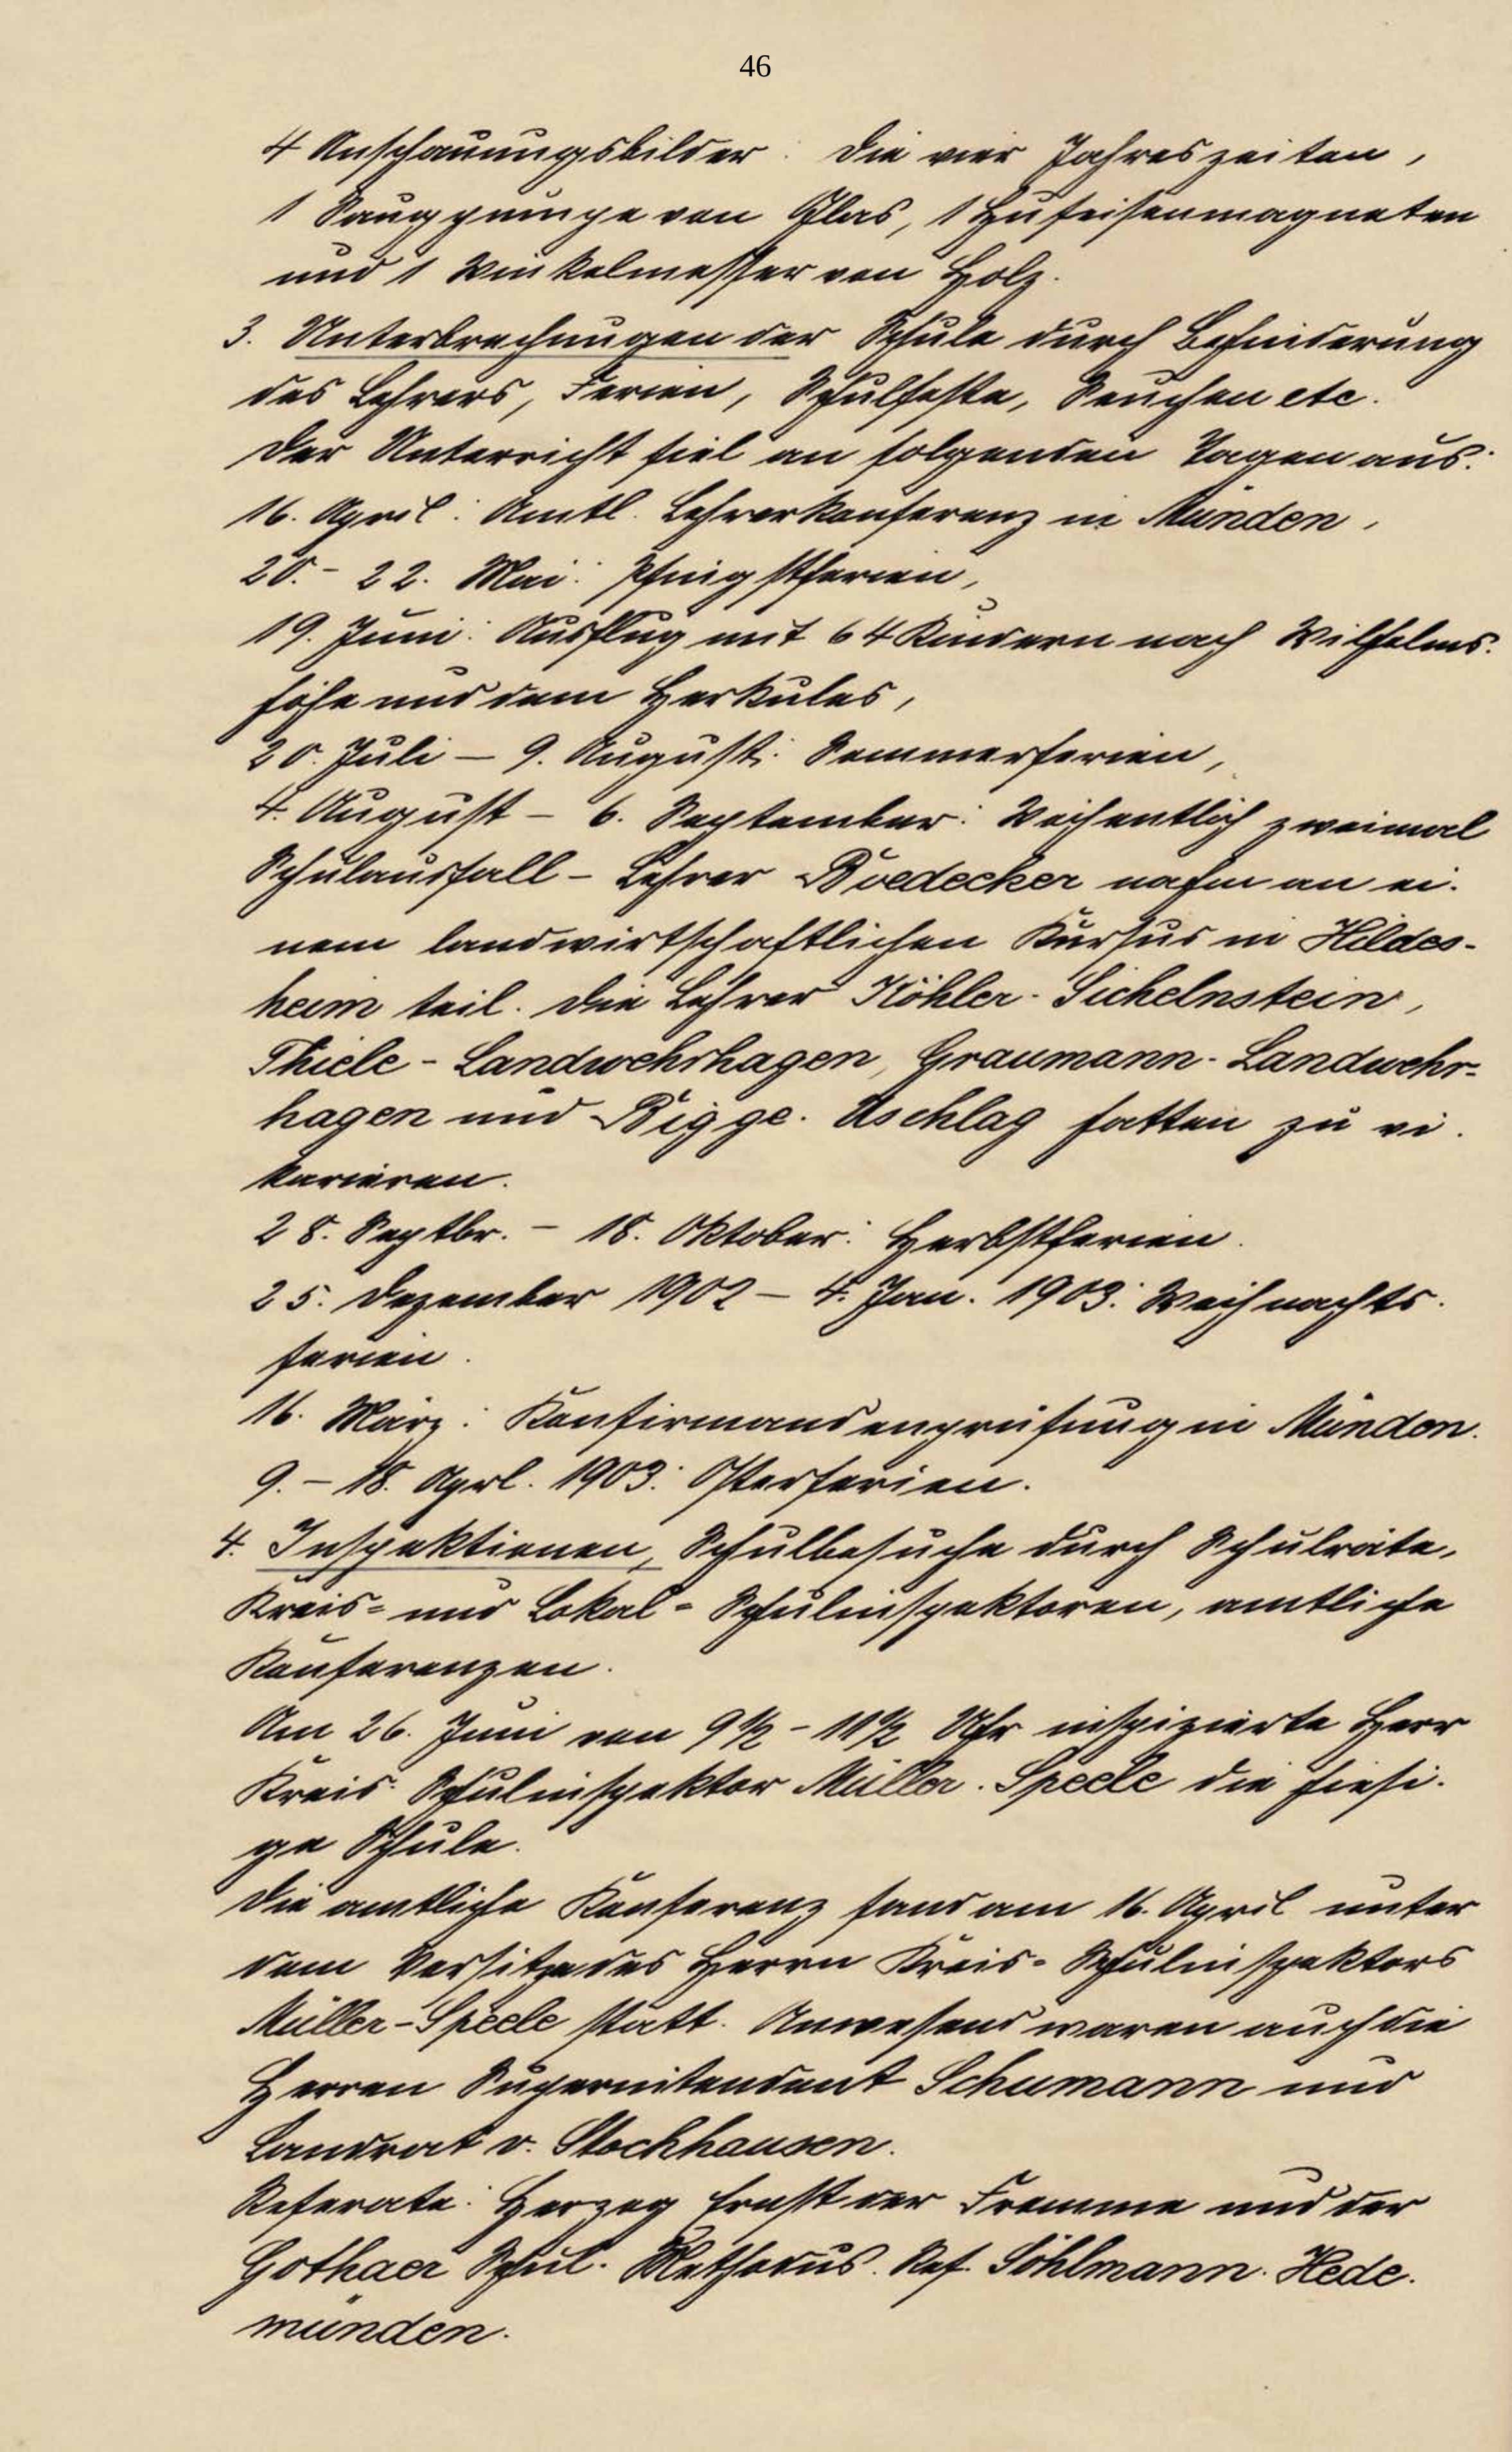 46
4 Anschauungsbilder: Die vier Jahreszeiten,
1 Saugpumpe von Glas, 1 Hufeisenmagneten
und 1 Winkelmesser von Holz.
3. Unterbrechungen der Schule durch Behinderung
des Lehrers, Ferien, Schulfeste, Seuchen etc.
Der Unterricht fiel an folgenden Tagen aus:
16. April: Amtl. Lehrerkonferenz in Münden,
20.- 22. Mai: Pfingstferien,
19. Juni: Ausflug mit 64 Kindern nach Wilhelms-
höhe und dem Herkules,
20. Juli – 9. August: Sommerferien,
4. August – 6. September: Wöchentlich zweimal
Schulausfall – Lehrer Boedecker nahm an ei-
nem landwirtschaftlichen Kursus in Hildes-
heim teil. Die Lehrer Köhler-Sichelnstein,
Thiele-Landwehrhagen, Graumann-Landwehr-
hagen und Bigge-Uschlag hatten zu vi-
karieren.
28. Septbr. – 18. Oktober: Herbstferien.
25. Dezember 1902 – 4. Jan. 1903: Weihnachts-
ferien.
16. März: Konfirmandenprüfung in Münden.
9. – 18. Aprl. 1903: Osterferien.
4. Inspektionen, Schulbesuche durch Schulräte,
Kreis- und Lokal-Schulinspektoren, amtliche
Konferenzen.
Am 26. Juni von 9½ – 11½ Uhr inspizierte Herr
Kreis-Schulinspektor Müller-Speele die hiesi-
ge Schule.
Die amtliche Konferenz fand am 16. April unter
dem Vorsitze des Herrn Kreis-Schulinspektors
Müller-Speele statt. Anwesend waren auch die
Herren Superintendent Schumann und
Landrat v. Stockhausen.
Referate: Herzog Ernst der Fromme und der
Gothaer Schul-Methodus. Ref. Söhlmann-Hede-
münden.